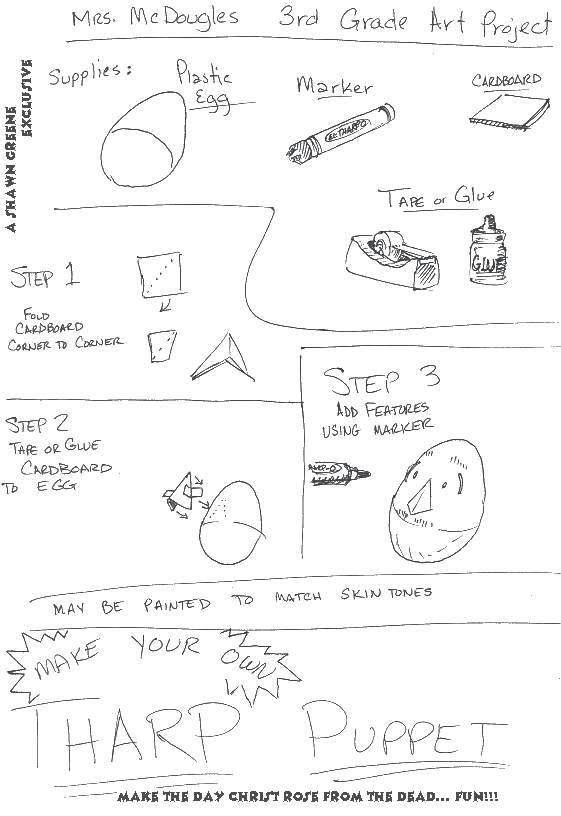 Mrs. McDougles 3rd Grade Art Project
A SHAWN GREENE
EXCLUSIVE
Supplies:
Plastic
Egg
Marker
CARDBOARD
TAPE or Glue
GLUE
STEP 1
FOLD
CARDBOARD
CORNER TO CORNER
STEP 2
TAPE OR GLUE
CARDBOARD
TO EGG
STEP 3
ADD FEATURES
USING MARKER
MAY BE PAINTED TO MATCH SKIN TONES
MAKE YOUR OWN
THARP PUPPET
MAKE THE DAY CHRIST ROSE FROM THE DEAD... FUN!!!